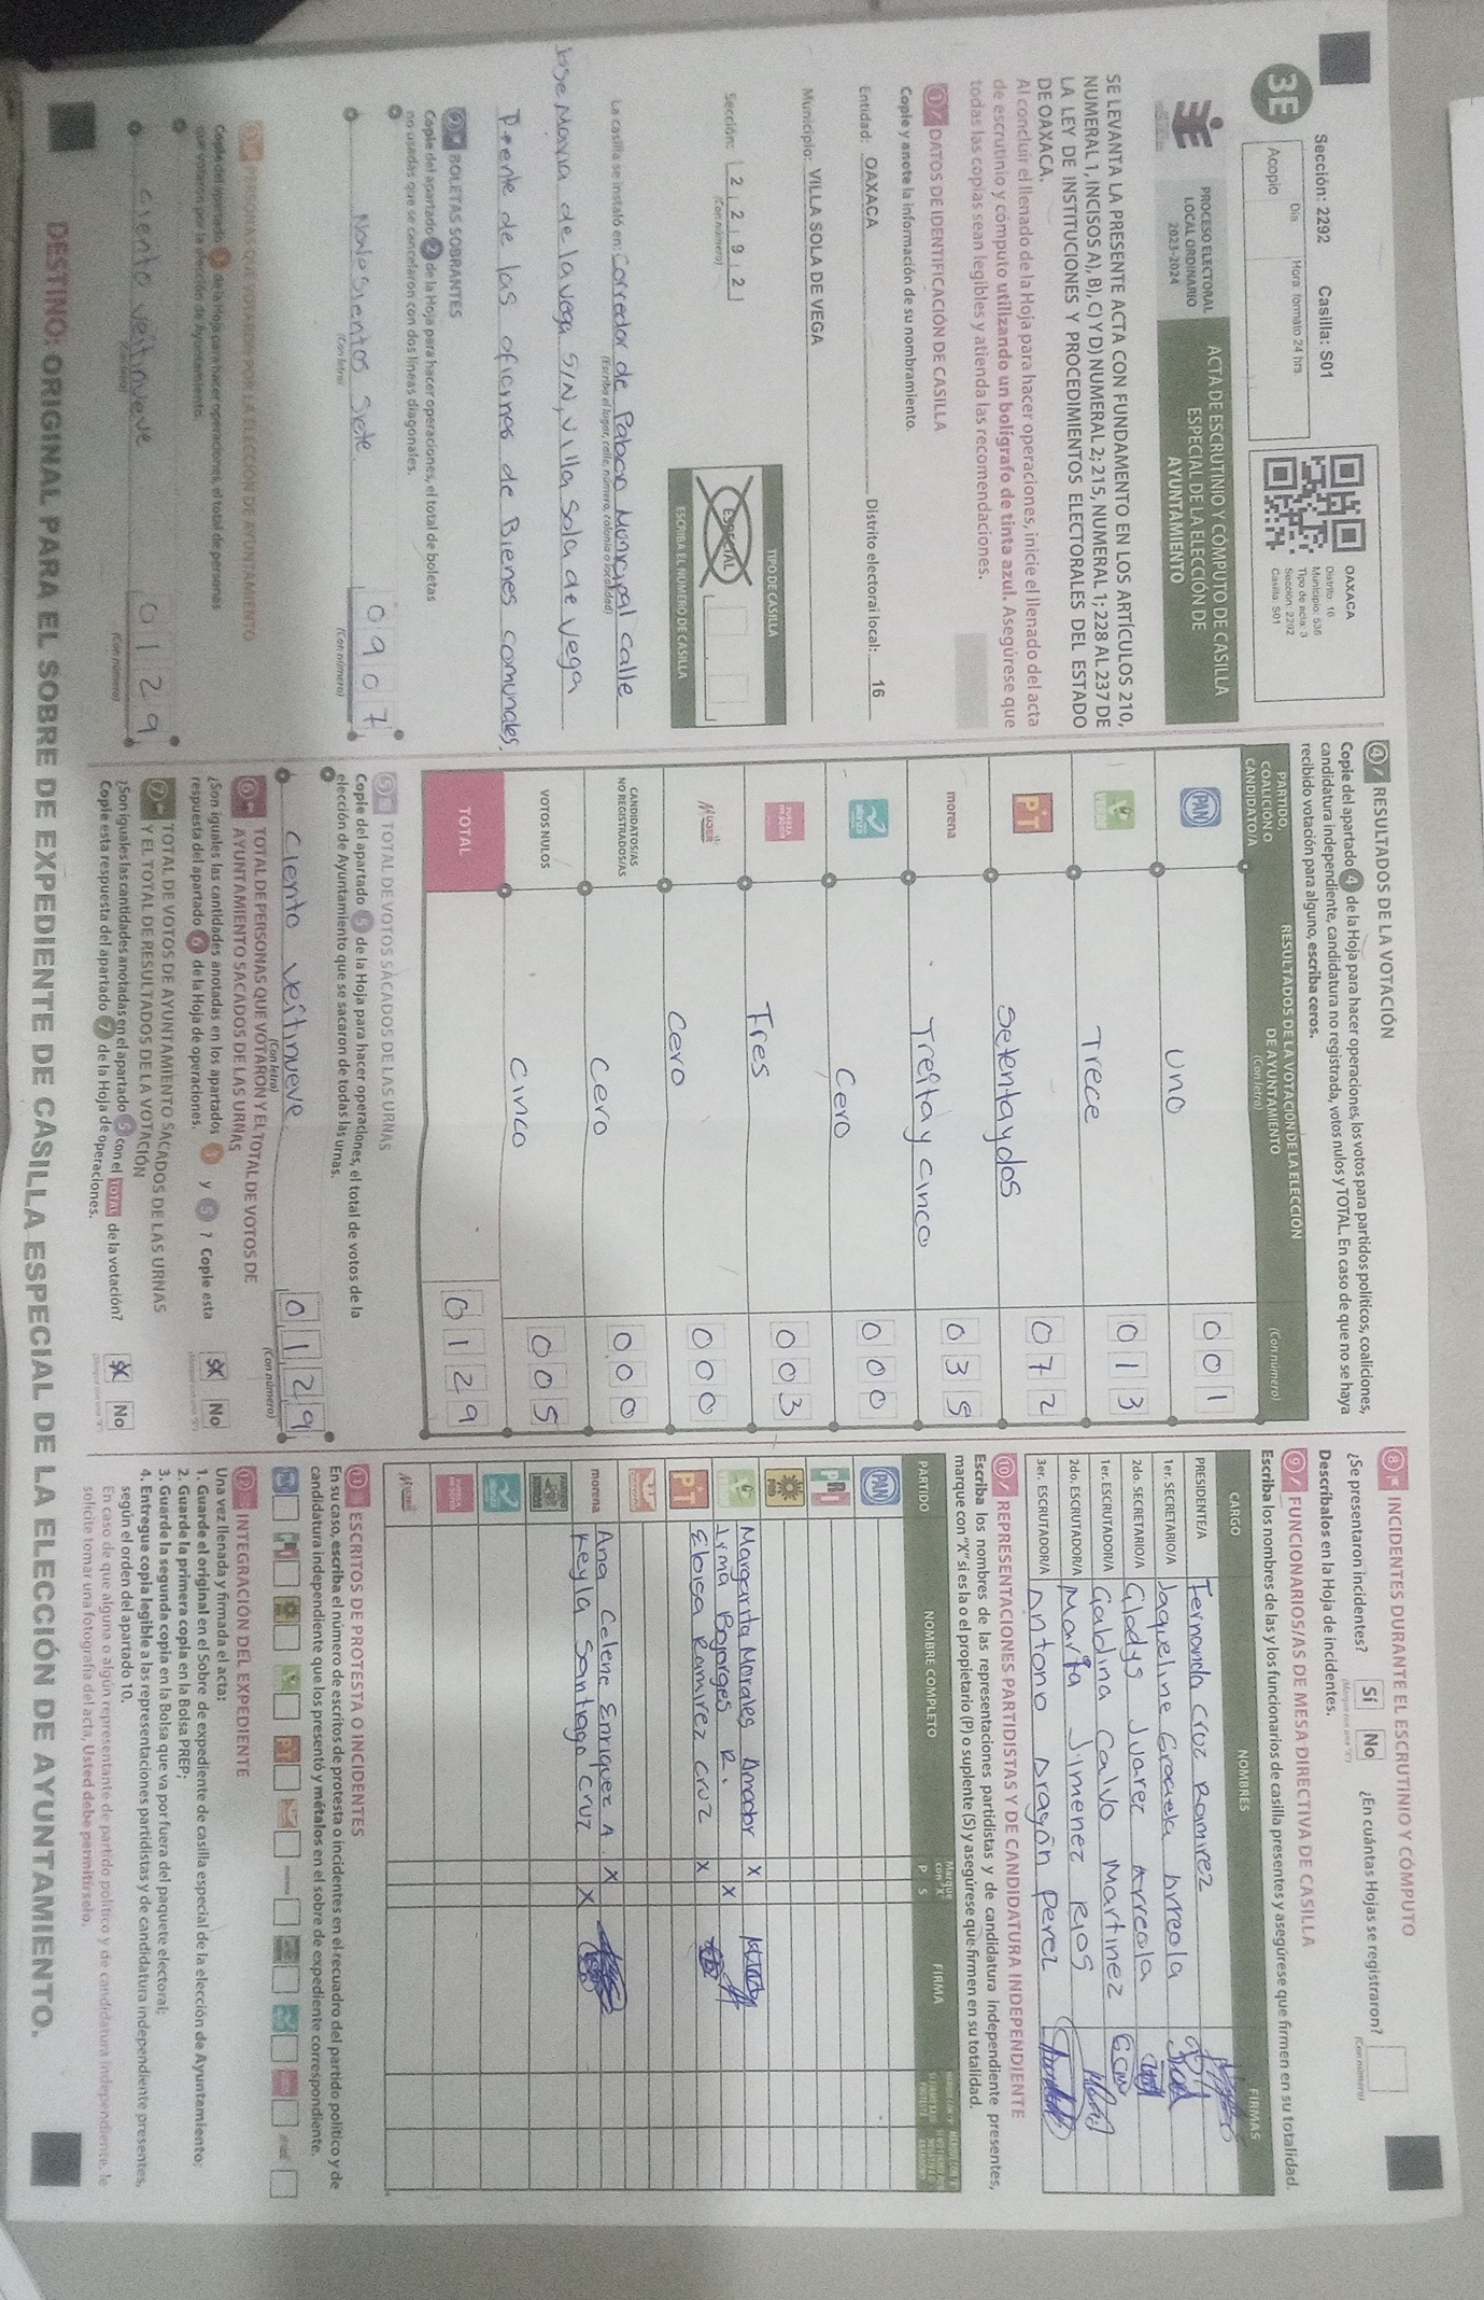 Sección: 2292 Casilla: S01
Día Hora: formato 24 hrs.
Acopio
3E
OAXACA
Distrito: 16
Municipio: 536
Tipo de acta: 3
Sección: 2292
Casilla: S01
PROCESO ELECTORAL
LOCAL ORDINARIO
2023-2024
ACTA DE ESCRUTINIO Y CÓMPUTO DE CASILLA
ESPECIAL DE LA ELECCIÓN DE
AYUNTAMIENTO
SE LEVANTA LA PRESENTE ACTA CON FUNDAMENTO EN LOS ARTÍCULOS 210,
NUMERAL 1, INCISOS A), B), C) Y D) NUMERAL 2; 215, NUMERAL 1; 228 AL 237 DE
LA LEY DE INSTITUCIONES Y PROCEDIMIENTOS ELECTORALES DEL ESTADO
DE OAXACA.
Al concluir el llenado de la Hoja para hacer operaciones, inicie el llenado del acta
de escrutinio y cómputo utilizando un bolígrafo de tinta azul. Asegúrese que
todas las copias sean legibles y atienda las recomendaciones.
1 DATOS DE IDENTIFICACIÓN DE CASILLA
Copie y anote la información de su nombramiento.
Entidad: OAXACA Distrito electoral local: 16
Municipio: VILLA SOLA DE VEGA
TIPO DE CASILLA
Sección: 2 2 9 2
(Con número)
ESPECIAL
ESCRIBA EL NÚMERO DE CASILLA
La casilla se instaló en: Corredor de Palacio Municipal calle
(Escriba el lugar, calle, número, colonia o localidad)
Jose Maria de la vega S/N, Villa Sola de Vega
Frente de las oficinas de Bienes comunales.
2 BOLETAS SOBRANTES
Copie del apartado 2 de la Hoja para hacer operaciones, el total de boletas
no usadas que se cancelaron con dos líneas diagonales.
Novesientos Siete 0 9 0 7
(Con letra) (Con número)
3 PERSONAS QUE VOTARON POR LA ELECCIÓN DE AYUNTAMIENTO
Copie del apartado 3 de la Hoja para hacer operaciones, el total de personas
que votaron por la elección de Ayuntamiento.
Ciento veitinueve 0 1 2 9
(Con letra) (Con número)
4 RESULTADOS DE LA VOTACIÓN
Copie del apartado 4 de la Hoja para hacer operaciones, los votos para partidos políticos, coaliciones,
candidatura independiente, candidatura no registrada, votos nulos y TOTAL. En caso de que no se haya
recibido votación para alguno, escriba ceros.
PARTIDO,
COALICIÓN O
CANDIDATO/A
RESULTADOS DE LA VOTACIÓN DE LA ELECCIÓN
DE AYUNTAMIENTO
(Con letra) (Con número)
PAN Uno 0 0 1
VERDE Trece 0 1 3
PT Setenta y dos 0 7 2
morena Treitay cinco 0 3 5
alianza Cero 0 0 0
FUERZA Tres 0 0 3
MUJER Cero 0 0 0
CANDIDATOS/AS
NO REGISTRADOS/AS Cero 0 0 0
VOTOS NULOS Cinco 0 0 5
TOTAL 0 1 2 9
5 TOTAL DE VOTOS SACADOS DE LAS URNAS
Copie del apartado 5 de la Hoja para hacer operaciones, el total de votos de la
elección de Ayuntamiento que se sacaron de todas las urnas.
Ciento veitinueve 0 1 2 9
(Con letra) (Con número)
6 TOTAL DE PERSONAS QUE VOTARON Y EL TOTAL DE VOTOS DE
AYUNTAMIENTO SACADOS DE LAS URNAS
¿Son iguales las cantidades anotadas en los apartados 3 y 5 ? Copie esta
respuesta del apartado 6 de la Hoja de operaciones. Sí No
7 TOTAL DE VOTOS DE AYUNTAMIENTO SACADOS DE LAS URNAS
Y EL TOTAL DE RESULTADOS DE LA VOTACIÓN
¿Son iguales las cantidades anotadas en el apartado 5 con el TOTAL de la votación?
Copie esta respuesta del apartado 7 de la Hoja de operaciones. Sí No
8 INCIDENTES DURANTE EL ESCRUTINIO Y CÓMPUTO
¿Se presentaron incidentes? Sí No ¿En cuántas Hojas se registraron?
(Con número)
Descríbalos en la Hoja de incidentes.
9 FUNCIONARIOS/AS DE MESA DIRECTIVA DE CASILLA
Escriba los nombres de las y los funcionarios de casilla presentes y asegúrese que firmen en su totalidad.
CARGO NOMBRES FIRMAS
PRESIDENTE/A Fernanda Cruz Ramirez
1er. SECRETARIO/A Jaqueline Graciela Arreola
2do. SECRETARIO/A Gladys Juarez Arreola
1er. ESCRUTADOR/A Galdina Calvo Martinez GCM
2do. ESCRUTADOR/A Maria Jimenez Rios
3er. ESCRUTADOR/A Antonio Aragón Perez
10 REPRESENTACIONES PARTIDISTAS Y DE CANDIDATURA INDEPENDIENTE
Escriba los nombres de las representaciones partidistas y de candidatura independiente presentes,
marque con "X" si es la o el propietario (P) o suplente (S) y asegúrese que firmen en su totalidad.
PARTIDO NOMBRE COMPLETO Marque con "X" P S FIRMA
PAN
PRI
PRD
VERDE Margarita Morales Amador X
Irma Bojorges R. X
PT Eloisa Ramirez Cruz X
morena Ana Celene Enriquez A. X
Keyla Santiago Cruz X
11 ESCRITOS DE PROTESTA O INCIDENTES
En su caso, escriba el número de escritos de protesta o incidentes en el recuadro del partido político y de
candidatura independiente que los presentó y métalos en el sobre de expediente correspondiente.
12 INTEGRACIÓN DEL EXPEDIENTE
Una vez llenada y firmada el acta:
1. Guarde el original en el Sobre de expediente de casilla especial de la elección de Ayuntamiento;
2. Guarde la primera copia en la Bolsa PREP;
3. Guarde la segunda copia en la Bolsa que va por fuera del paquete electoral;
4. Entregue copia legible a las representaciones partidistas y de candidatura independiente presentes,
según el orden del apartado 10.
En caso de que alguna o algún representante de partido político y de candidatura independiente, le
solicite tomar una fotografía del acta, Usted debe permitírselo.
DESTINO: ORIGINAL PARA EL SOBRE DE EXPEDIENTE DE CASILLA ESPECIAL DE LA ELECCIÓN DE AYUNTAMIENTO.